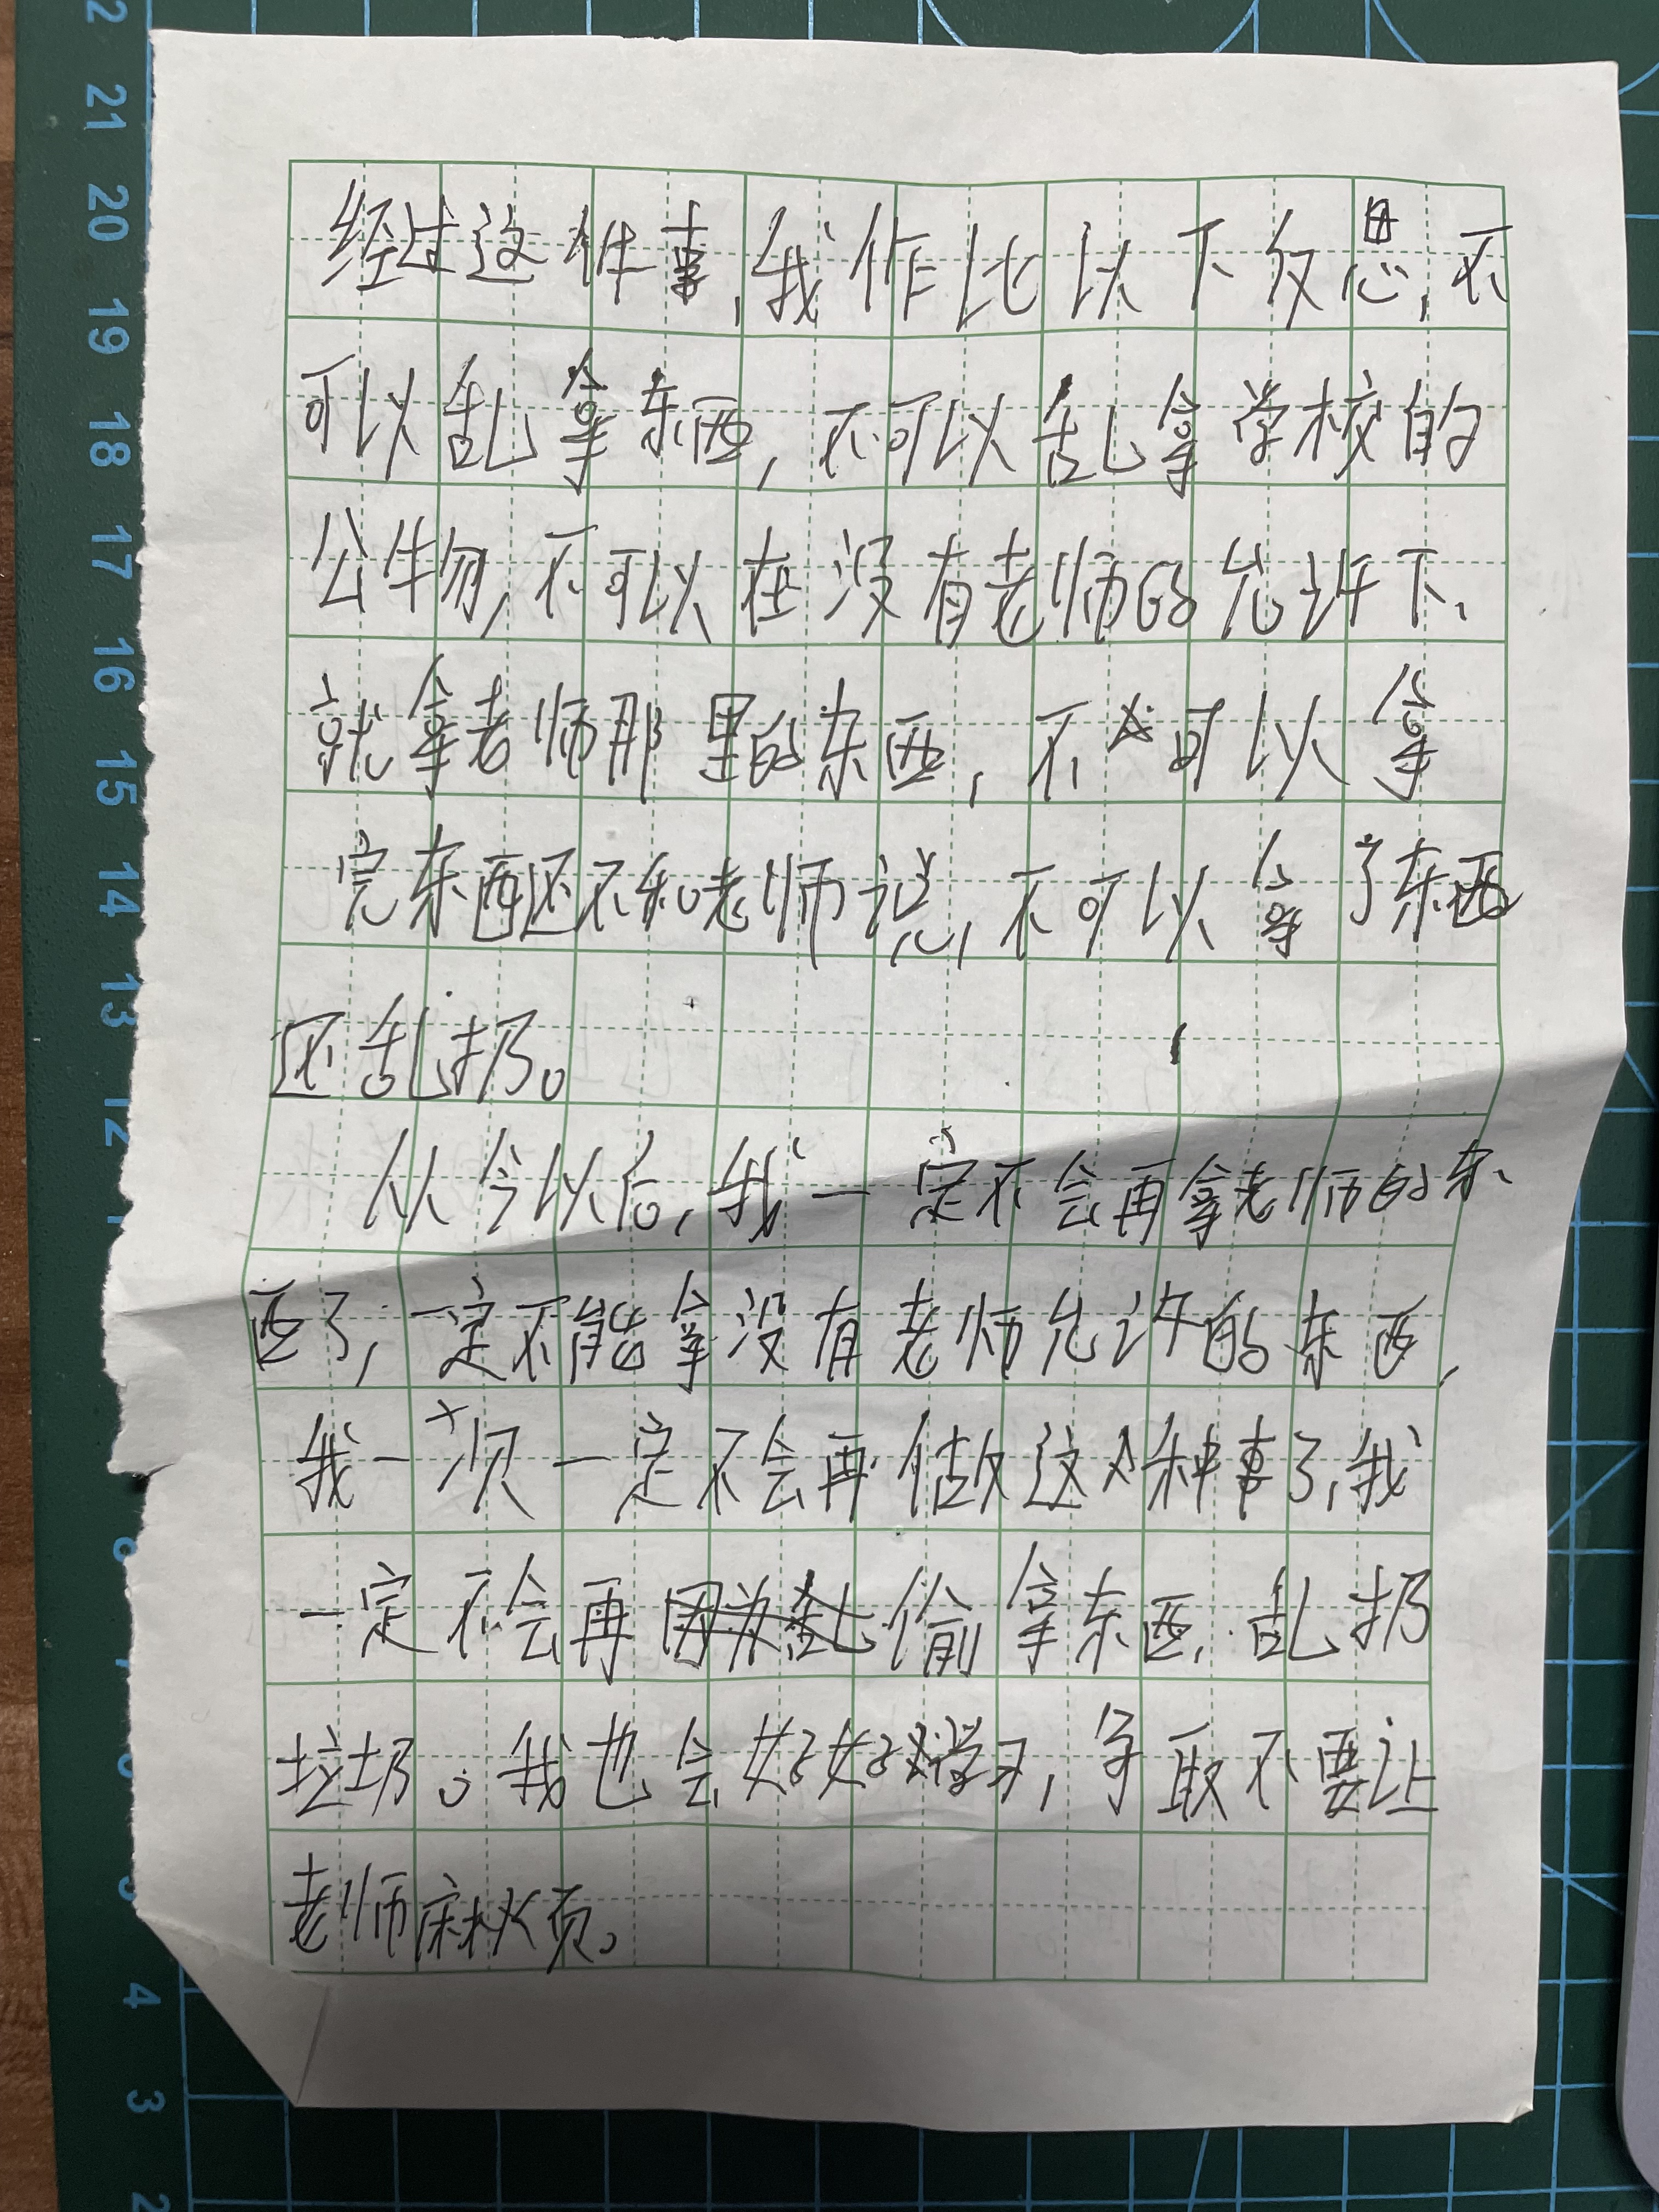 经过这件事,我作比以下反思,不
可以乱拿东西,不可以乱拿学校的
公牛物,不可以在没有老师的允许下、
就拿老师那里的东西,不可以拿
完东西还不和老师说,不可以拿了东西
还乱扔。
从今以后,我一定不会再拿老师的东
西了,一定不能拿没有老师允许的东西,
我一次一定不会再做这种事了,我
一定不会再偷拿东西,乱扔
垃圾。我也会好好学习,争取不要让
老师麻烦。
22
21
20
19
18
17
16
15
14
13
12
4
3
2